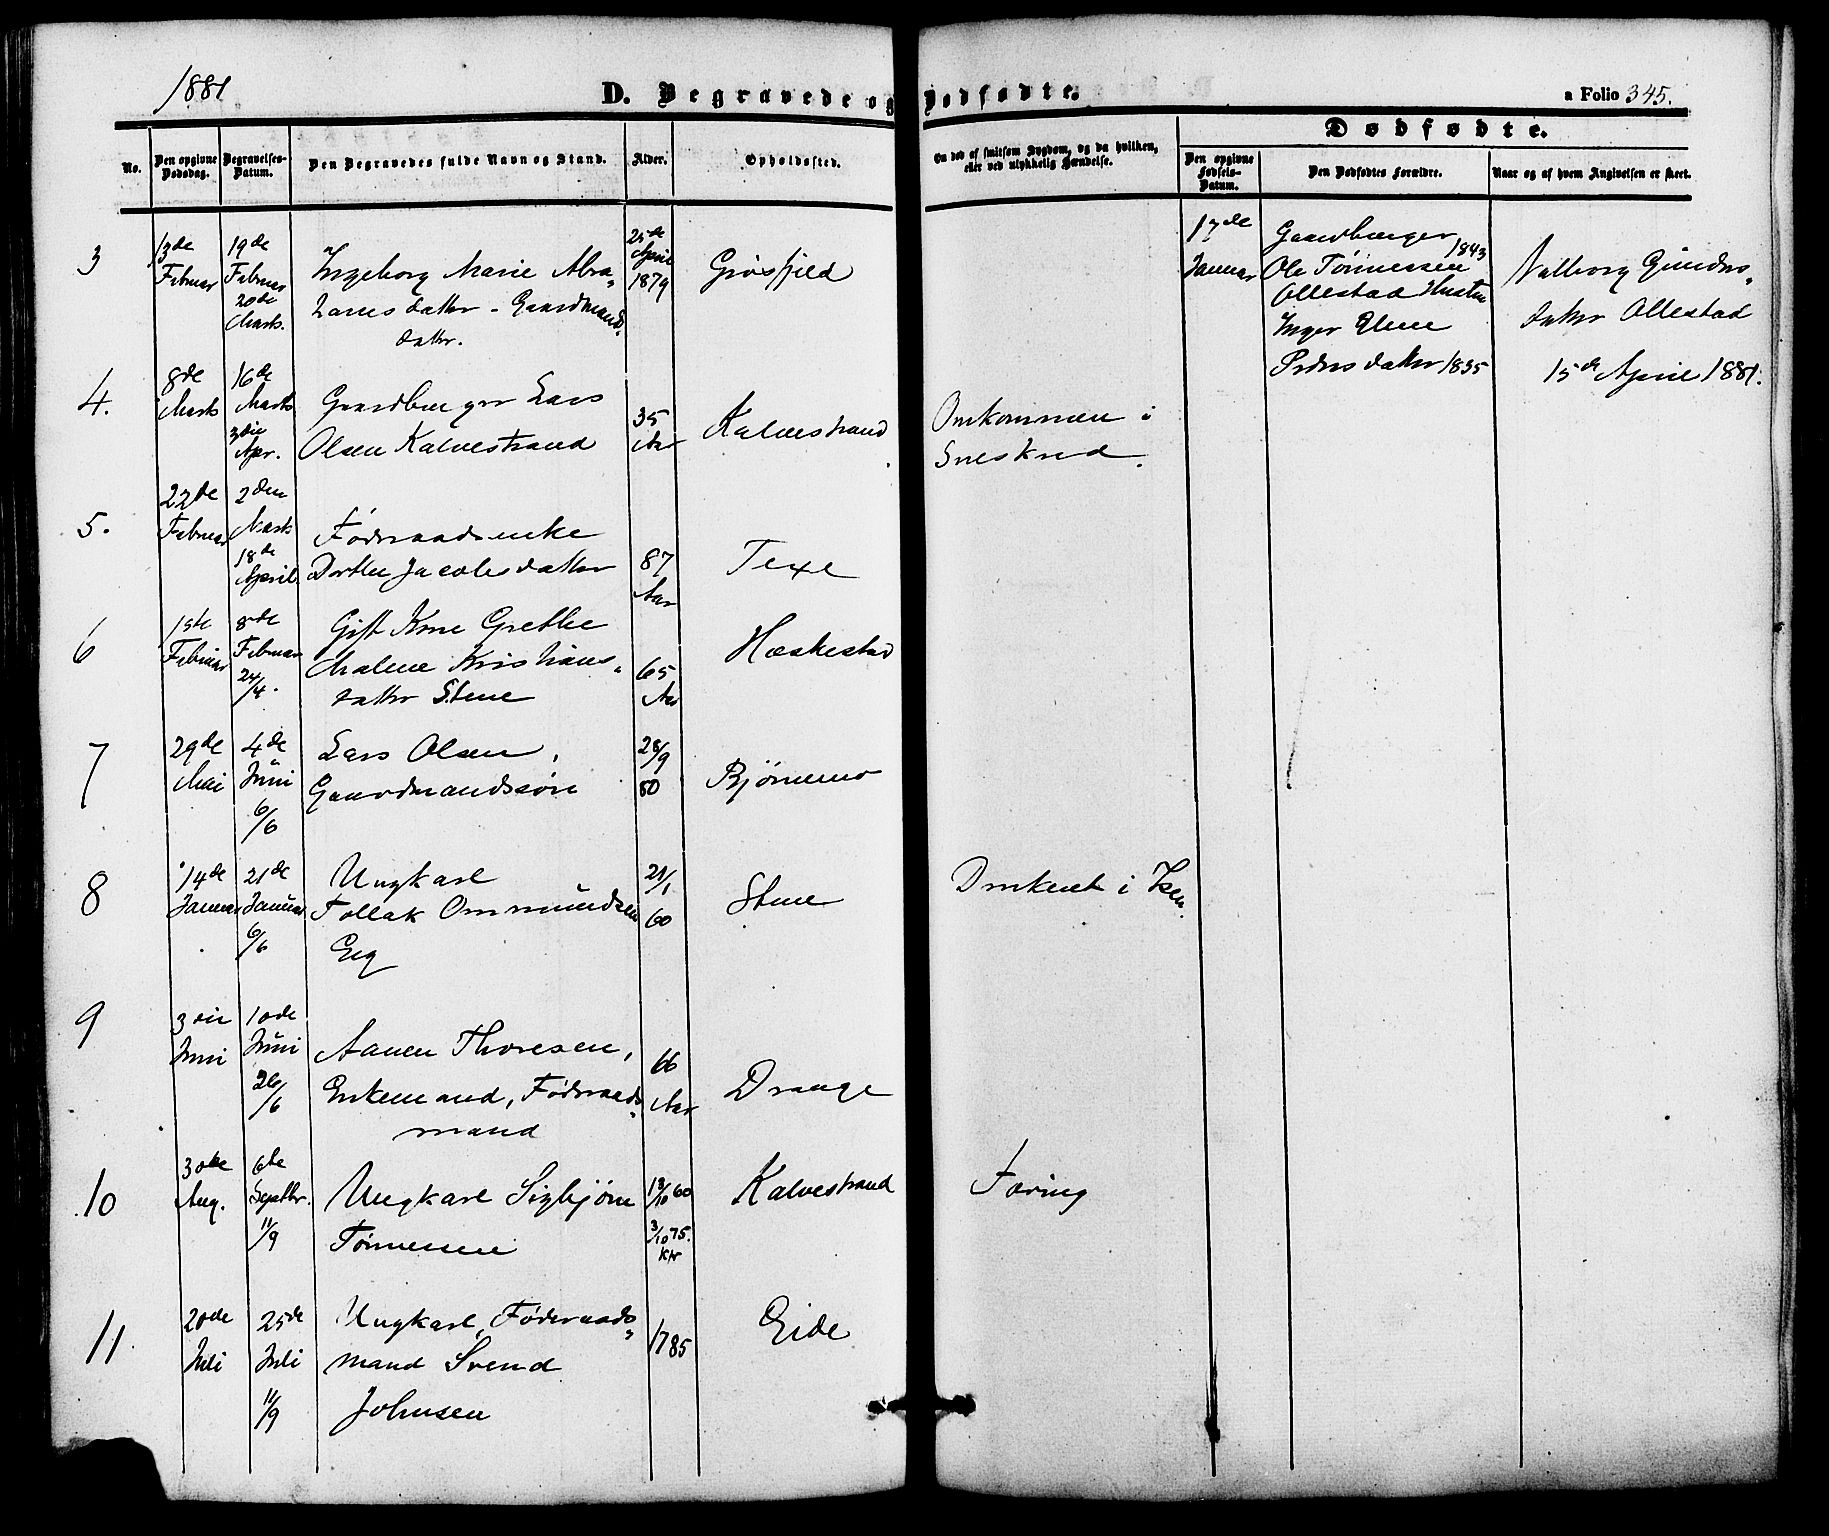 1881
D. Begravede og Dødfødte.
a Folio 345.
No.
Den opgivne Dødsdag.
Begravelses-Datum.
Den Begravedes fulde Navn og Stand.
Alder.
Opholdssted.
Om død af smitsom Sygdom, og da hvilken,
eller ved ulykkelig Hændelse.
Dødfødte.
Den opgivne Fødsels-Datum.
Den Dødfødtes Forældre.
Naar og af hvem Angivelsen er skeet.
3
13de
Februar
19de
Februar
20de
Marts.
Ingeborg Marie Abra„
hamsdatter - Gaardmands„
datter.
25de
April
1879
Grøsfjeld
17de
Januar
Gaardbruger
Ole Tønnessen 1843
Ollestad Hustru
Inger Elene
Pedersdatter 1835
Valborg Gunders„
datter Ollestad
15de April 1881.
4.
8de
Marts
16de
Marts
3die
Apr.
Gaardbruger Lars
Olsen Kalvestrand
35
Aar
Kalvestrand
Omkommen i
Sneskred.
5.
22de
Februar
2den
Marts
18de
April
Føderaadsenke
Dorthe Jacobsdatter
87
Aar
Texe
6
1ste
Februar
8de
Februar
24/4.
Gift Kone Grethe
Malene Kristians„
datter Stene
65
Aar
Hæskestad
7
29de
Mai
4de
Juni
6/6
Lars Olsen,
Gaardmandssøn
28/9
80
Bjørnemo
8
14de
Januar
21de
Januar
6/6
Ungkarl
Tollak Ommundsen
Eeg
21/1
60
Stene
Druknet i Isen.
9
3die
Juni
10de
Juni
26/6
Aanen Thoresen,
Enkemand, Føderaads„
mand
66
Aar
Drange
10
30te
Aug.
6te
Septbr.
11/9
Ungkarl Sigbjørn
Tønnessen
18/10 60
3/10 75.
Kfr
Kalvestrand
Tæring
11.
20de
Juli
25de
Juli
11/9
Ungkarl, Føderaads„
mand Svend
Johnsen
1785
Eide